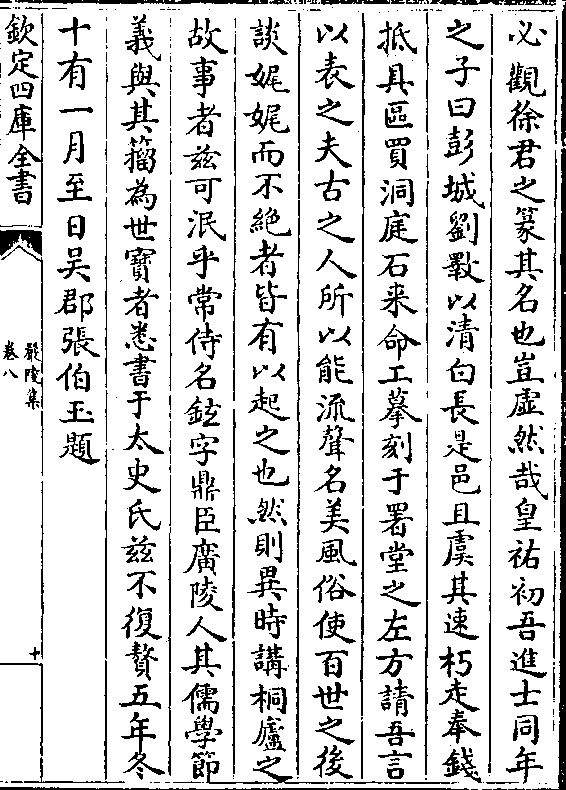 必觀徐君之篆其名也豈虛然哉皇祐初吾進士同年
之子曰彭城劉斁以清白長是邑且虞其速朽走奉錢
抵具區買洞庭石来命工摹刻于署堂之左方請吾言
以表之夫古之人所以能流聲名美風俗使百世之後
談娓娓而不絶者皆有以起之也然則異時講桐廬之
故事者兹可泯乎常侍名鉉字鼎臣廣陵人其儒學節
義與其籀為世寶者悉書于太史氏兹不復贅五年冬
十有一月至日吴郡張伯玉題
欽定四庫全書
嚴陵集
卷八
十